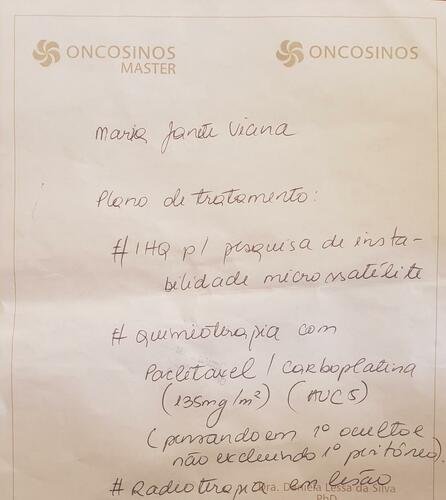 ONCOSINOS
MASTER
ONCOSINOS
Maria Janete Viana
Plano de tratamento:
# IHQ p/ pesquisa de insta-
bilidade microssatélite
# Quimioterapia com
Paclitaxel / Carboplatina
(135mg/m²) (AUC5)
(pensando em 1º oculto e
não excluindo 1º peritônio).
Dra. Daniela Lessa da Silva
PhD
# Radioterapia em lesão